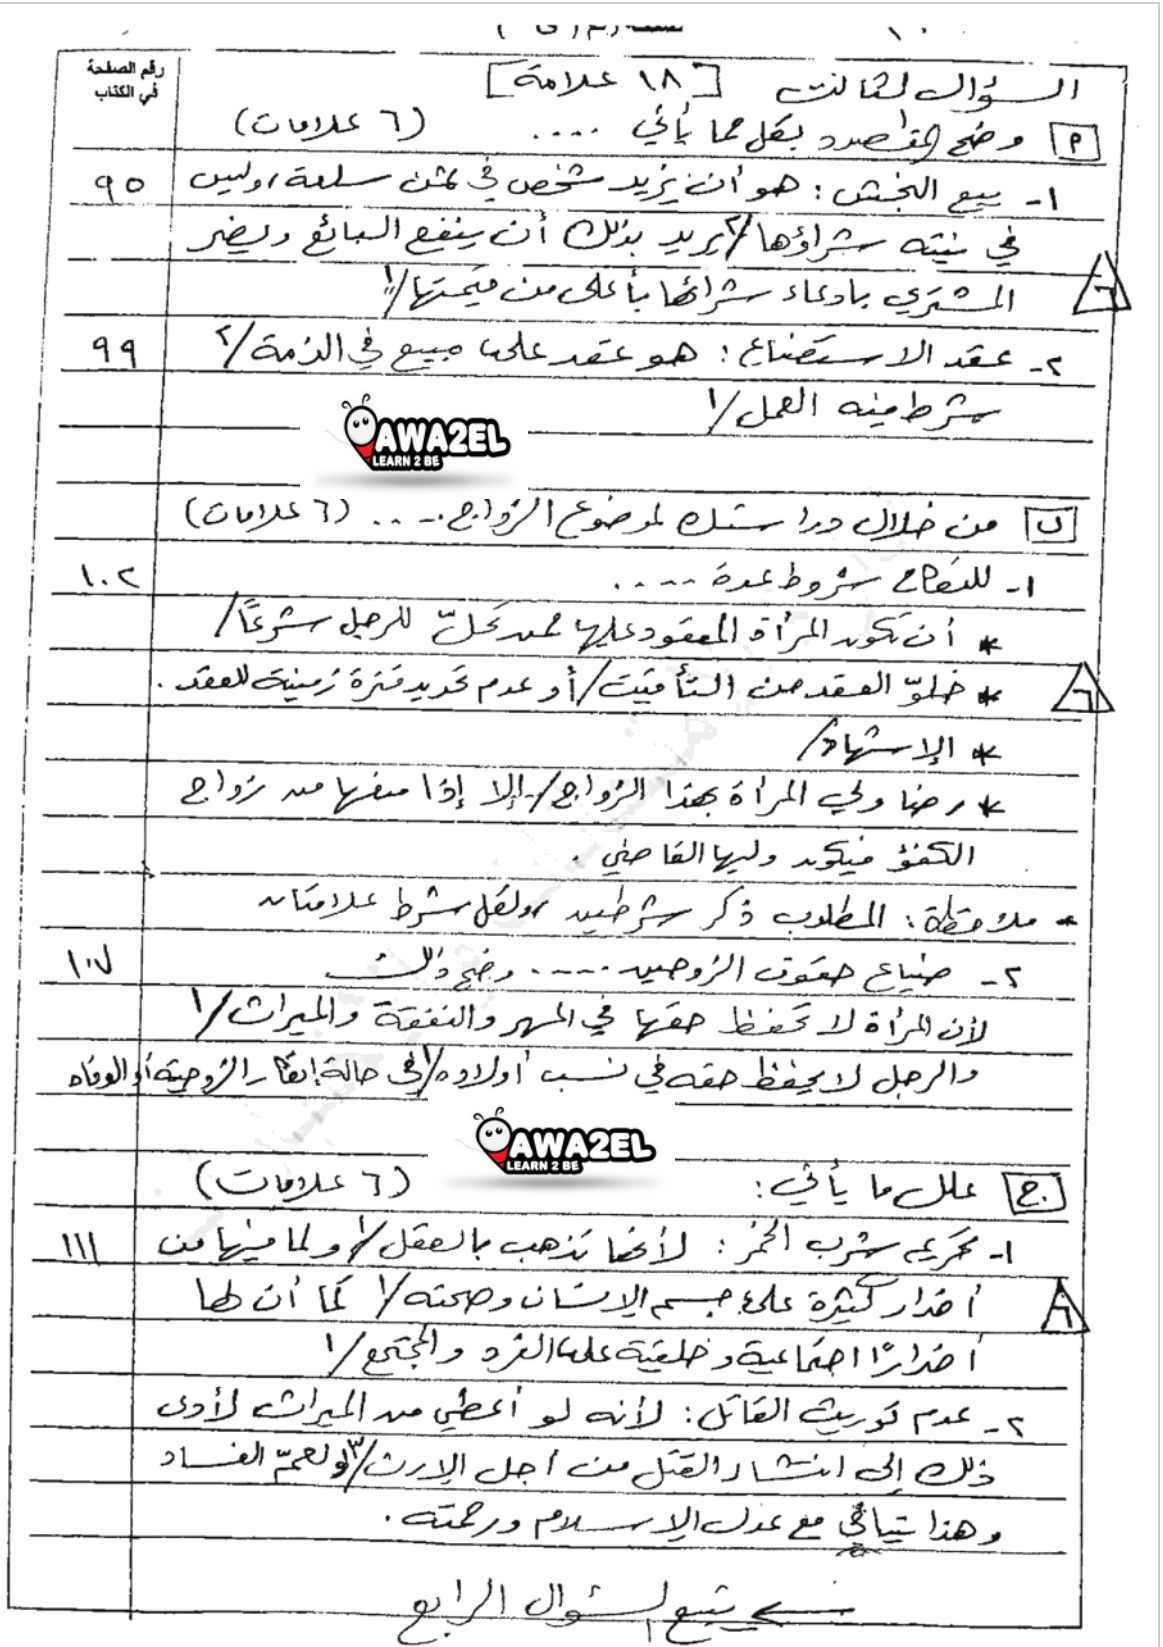 رقم الصفحة
في الكتاب
السؤال الثالث [١٨ علامة]
أ وضح المقصود بكل مما يأتي .... (٦ علامات)
١- بيع النجش: هو أن يزيد شخص في ثمن سلعة، وليس ٩٥
في نيته شراؤها/٢ يريد بذلك أن ينفع البائع ويضر
٦
المشتري بادعاء شرائها بأعلى من قيمتها/١
٢- عقد الاستصناع: هو عقد على مبيع في الذمة/٢ ٩٩
شرط فيه العمل/١
AWA2EL
LEARN 2 BE
ب من خلال دراستك لموضوع الزواج .... (٦ علامات)
١- للنكاح شروط عدة .... ١٠٢
* أن تكون المرأة المعقود عليها ممن تحلّ للرجل شرعًا/
* خلوّ العقد من التأقيت/أو عدم تحديد فترة زمنية للعقد. ٦
* الإشهاد/
* رضا ولي المرأة بهذا الزواج/إلا إذا منعها من زواج
الكفؤ فيكون وليها القاضي.
* ملاحظة: المطلوب ذكر شرطين، ولكل شرط علامتان
٢- ضياع حقوق الزوجين .... وضح ذلك ١٠٧
لأن المرأة لا تحفظ حقها في المهر والنفقة والميراث/١
والرجل لا يحفظ حقه في نسب أولاده/١ في حالة إنكار الزوجية أو الوفاة
AWA2EL
LEARN 2 BE
ج علل ما يأتي: (٦ علامات)
١- تحريم شرب الخمر: لأنها تذهب بالعقل/١ ولما فيها من ١١١
أضرار كثيرة على جسم الإنسان وصحته/١ كما أن لها ٦
أضرارًا اجتماعية وخلقية على الفرد والمجتمع/١
٢- عدم توريث القاتل: لأنه لو أعطي من الميراث لأدى
ذلك إلى انتشار القتل من أجل الإرث/٣ ولعمّ الفساد
وهذا يتنافى مع عدل الإسلام ورحمته.
يتبع السؤال الرابع